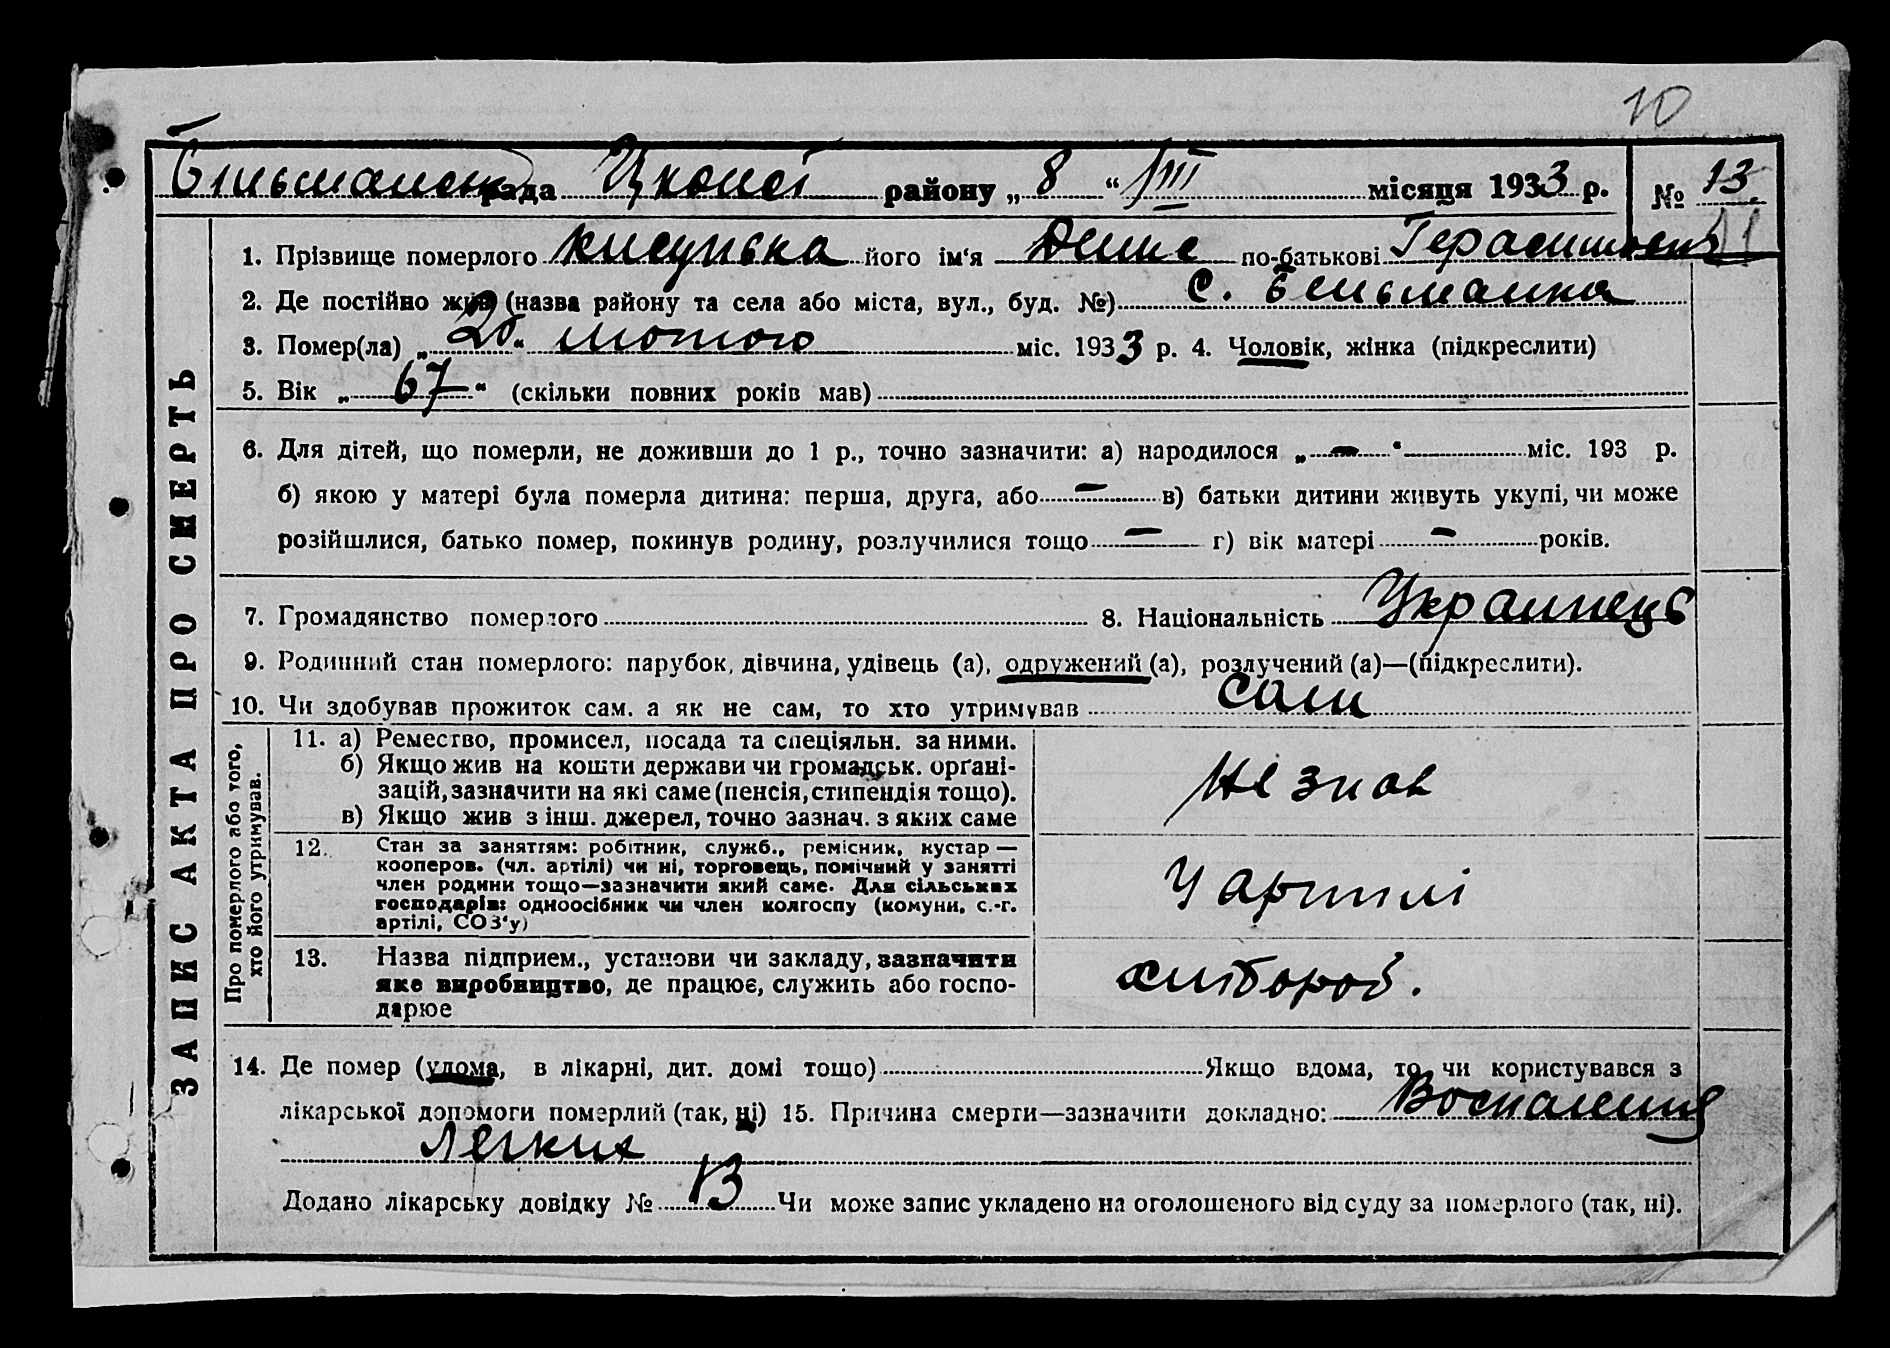 10
Бильманськ рада району „ 8 “ III місяця 1933 р. № 13
11
1. Прізвище померлого його ім'я по-батькові
2. Де постійно жив (назва району та села або міста, вул., буд. №) с. Бильманка
3. Помер(ла) „ “ лютого міс. 1933 р. 4. Чоловік, жінка (підкреслити)
5. Вік „ 67 “ (скільки повних років мав)
6. Для дітей, що померли, не доживши до 1 р., точно зазначити: а) народилося „ — “ міс. 193 р.
б) якою у матері була померла дитина: перша, друга, або — в) батьки дитини живуть укупі, чи може
розійшлися, батько помер, покинув родину, розлучилися тощо — г) вік матері — років.
7. Громадянство померлого 8. Національність Украинець
9. Родинний стан померлого: парубок, дівчина, удівець (а), одружений (а), розлучений (а)—(підкреслити).
10. Чи здобував прожиток сам, а як не сам, то хто утримував сам
ЗАПИС АКТА ПРО СМЕРТЬ
Про померлого або того,
хто його утримував.
11. а) Ремество, промисел, посада та спеціяльн. за ними.
б) Якщо жив на кошти держави чи громадськ. органі-
зацій, зазначити на які саме (пенсія, стипендія тощо).
в) Якщо жив з інш. джерел, точно зазнач. з яких саме
Не знав
12. Стан за заняттям: робітник, служб., ремісник, кустар —
кооперов. (чл. артілі) чи ні, торговець, помічний у занятті
член родини тощо—зазначити який саме. Для сільських
господарів: одноосібник чи член колгоспу (комуни, с.-г.
артілі, СОЗ'у)
У артилі
13. Назва підприєм., установи чи закладу, зазначити
яке виробництво, де працює, служить або госпо-
дарює
хлібороб.
14. Де помер (удома, в лікарні, дит. домі тощо) Якщо вдома, то чи користувався з
лікарської допомоги померлий (так, ні) 15. Причина смерти—зазначити докладно: Воспаления
Легких
Додано лікарську довідку № 13 Чи може запис укладено на оголошеного від суду за померлого (так, ні).